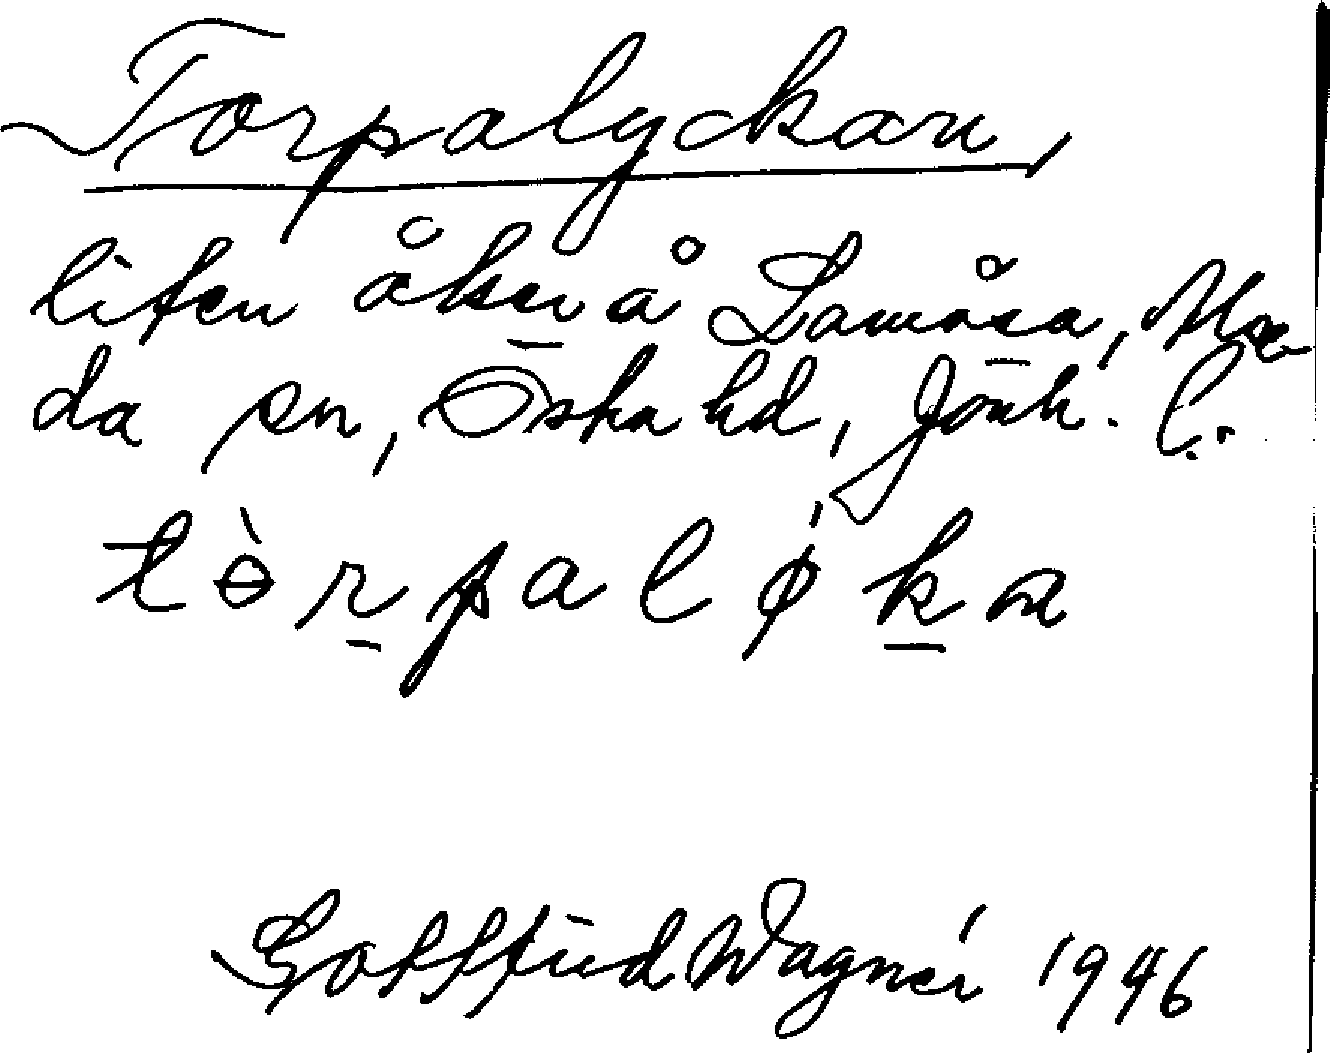 Torpalyckan,
liten åker å Lamåsa, Mo-
da sn, Östra hd, Jönk. l.
tɵ̀rpalǿka
Gottfrid Wagnér 1946